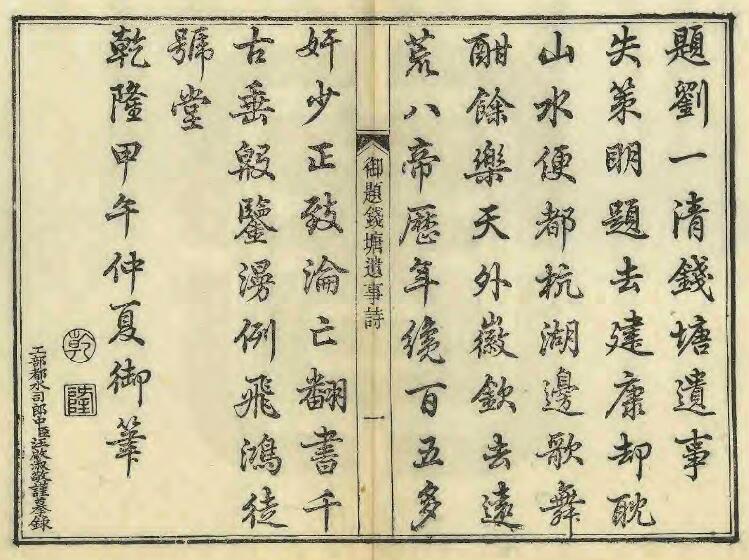 題劉一清錢塘遺事
失策明題去建康却耽
山水便都杭湖邊歌舞
酣餘樂天外徽欽去遠
荒八帝歷年纔百五多
御題錢塘遺事詩
一
奸少正致淪亡翻書千
古垂殷鑒漫例飛鴻徒
號堂
乾隆甲午仲夏御筆
乾
隆
工部都水司郎中臣汪啟淑敬謹摹錄